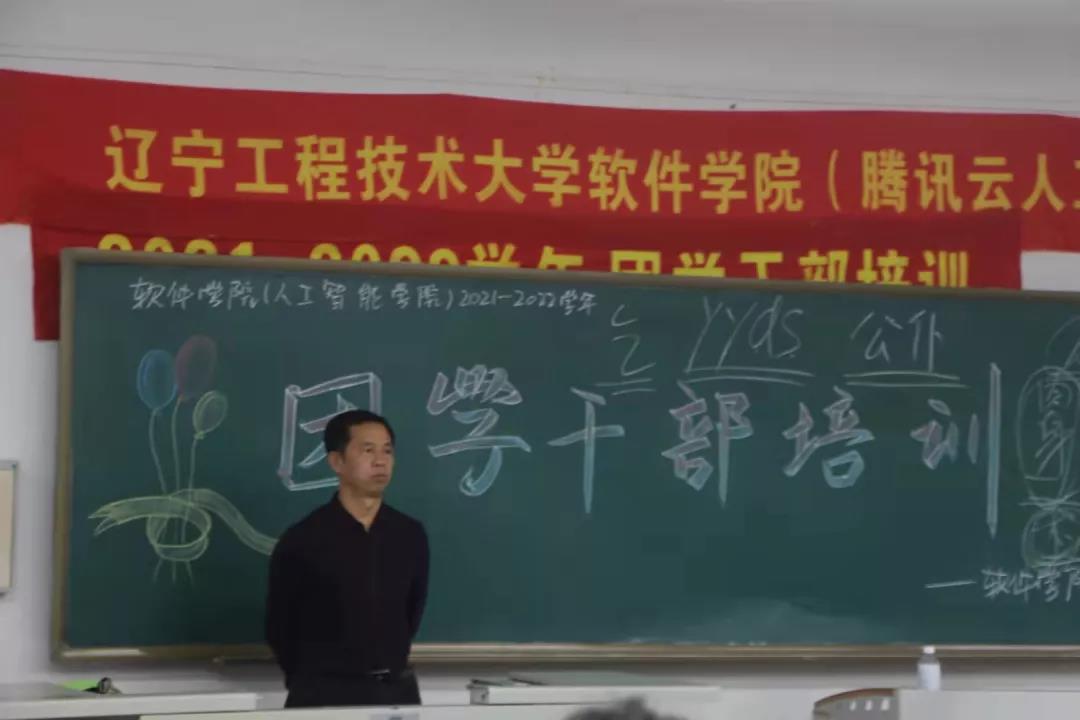 辽宁工程技术大学软件学院（腾讯云人工
2021-2022学年团学干部培训
软件学院(人工智能学院)2021-2022学年
yyds 公仆
团学干部培训
——软件学院